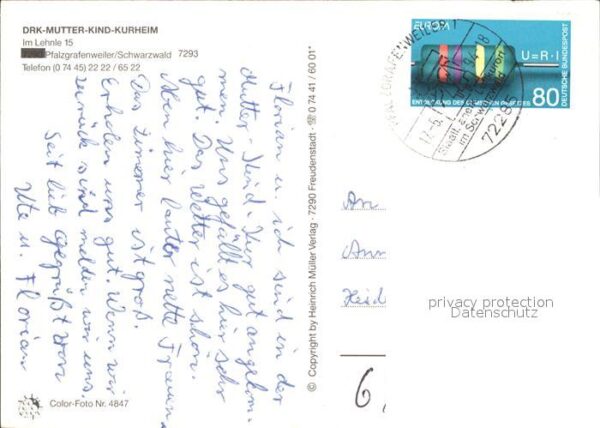 DRK-MUTTER-KIND-KURHEIM
Im Lehnle 15
7290 Pfalzgrafenweiler/Schwarzwald 7293
Telefon (0 74 45) 22 22 / 65 22
Florian u. ich sind in der
Mutter-Kind-Kur gut angekom-
men. Uns gefällt es hier sehr
gut. Das Wetter ist schön.
Aben hier lauter nette Frauen
Das Zimmer ist groß.
Erholen uns gut. Wenn wir
zurück sind melden wir uns.
Seit lieb gegrüßt von
Ute u. Florian
Color-Foto Nr. 4847
© Copyright by Heinrich Müller Verlag · 7290 Freudenstadt · ☎ 0 74 41 / 60 01*
EUROPA
U=R·I
DEUTSCHE BUNDESPOST
ENTDECKUNG DES OHMSCHEN GESETZES
80
PFALZGRAFENWEILER 1
Staatl. anerk.
im Schwarzwald
7228
An
Heid
privacy protection
Datenschutz
6